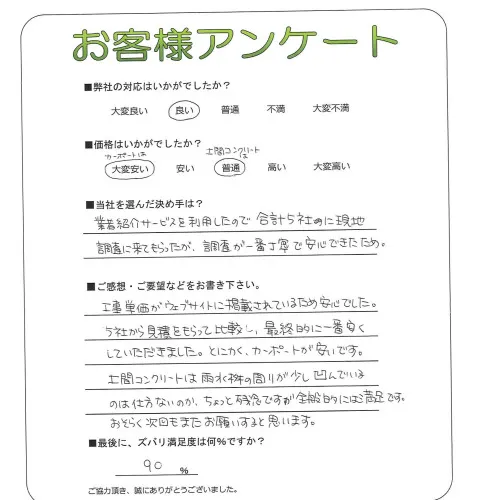 お客様アンケート
■弊社の対応はいかがでしたか?
大変良い 良い 普通 不満 大変不満
■価格はいかがでしたか?
カーポートは 土間コンクリートは
大変安い 安い 普通 高い 大変高い
■当社を選んだ決め手は?
業者紹介サービスを利用したので 合計5社の方に現地
調査に来てもらったが、調査が一番丁寧で安心できたため。
■ご感想・ご要望などをお書き下さい。
工事単価がウェブサイトに掲載されているため安心でした。
5社から見積をもらって比較し、最終的に一番安く
していただきました。とにかく、カーポートが安いです。
土間コンクリートは雨水桝の周りが少し凹んでいる
のは仕方ないのか、ちょっと残念ですが全般的には満足です。
おそらく次回もまたお願いすると思います。
■最後に、ズバリ満足度は何%ですか?
90 %
ご協力頂き、誠にありがとうございました。